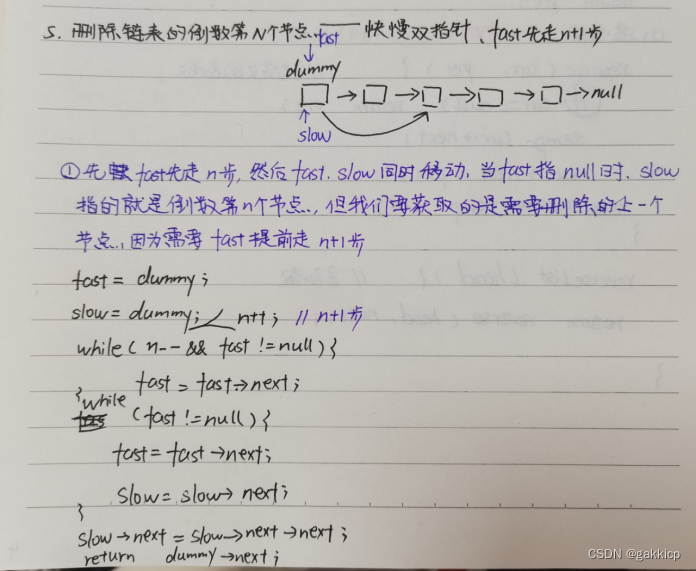 5. 删除链表的倒数第N个节点. —— 快慢双指针、fast先走n+1步
fast
dummy
□ → □ → □ → □ → □ → null
slow
①先 fast先走n步, 然后fast. slow同时移动. 当fast指null时. slow
指的就是倒数第n个节点., 但我们要获取的是需要删除的上一个
节点., 因为需要fast提前走n+1步
fast = dummy;
slow = dummy; n++; // n+1步
while( n-- && fast != null) {
fast = fast→next;
} while (fast != null) {
fast = fast→next;
slow = slow→ next;
}
slow→next = slow→next→next;
return dummy→next;
CSDN @gakkicp